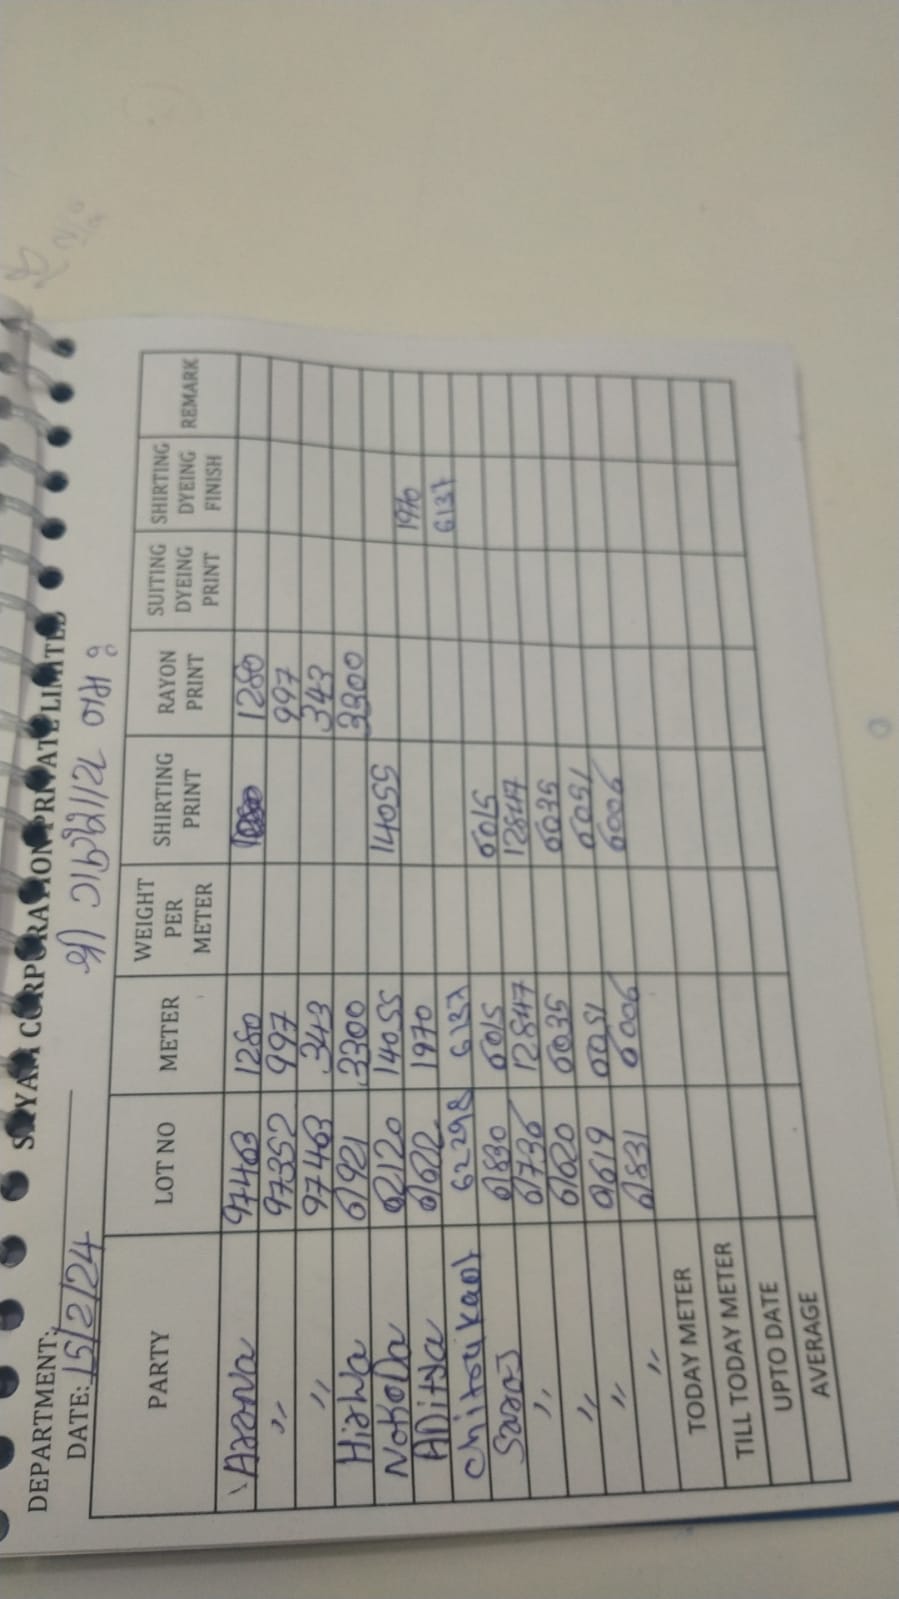 SHYAM CORPORATION PRIVATE LIMITED
DEPARTMENT:
DATE: 15/2/24
શ્રી ગણેશાય નમઃ
PARTY LOT NO METER WEIGHT PER METER SHIRTING PRINT RAYON PRINT SUITING DYEING PRINT SHIRTING DYEING FINISH REMARK
97463 1280 1280
" 97352 997 997
" 97463 343 343
61921 3300 3300
NOKODa 62120 14055 14055
ADitya 61622 1970 1970
62298 6137 6137
61830 6015 6015
" 61736 12847 12847
" 61620 6035 6035
" 61619 6051 6051
" 61831 6006 6006
TODAY METER
TILL TODAY METER
UPTO DATE
AVERAGE